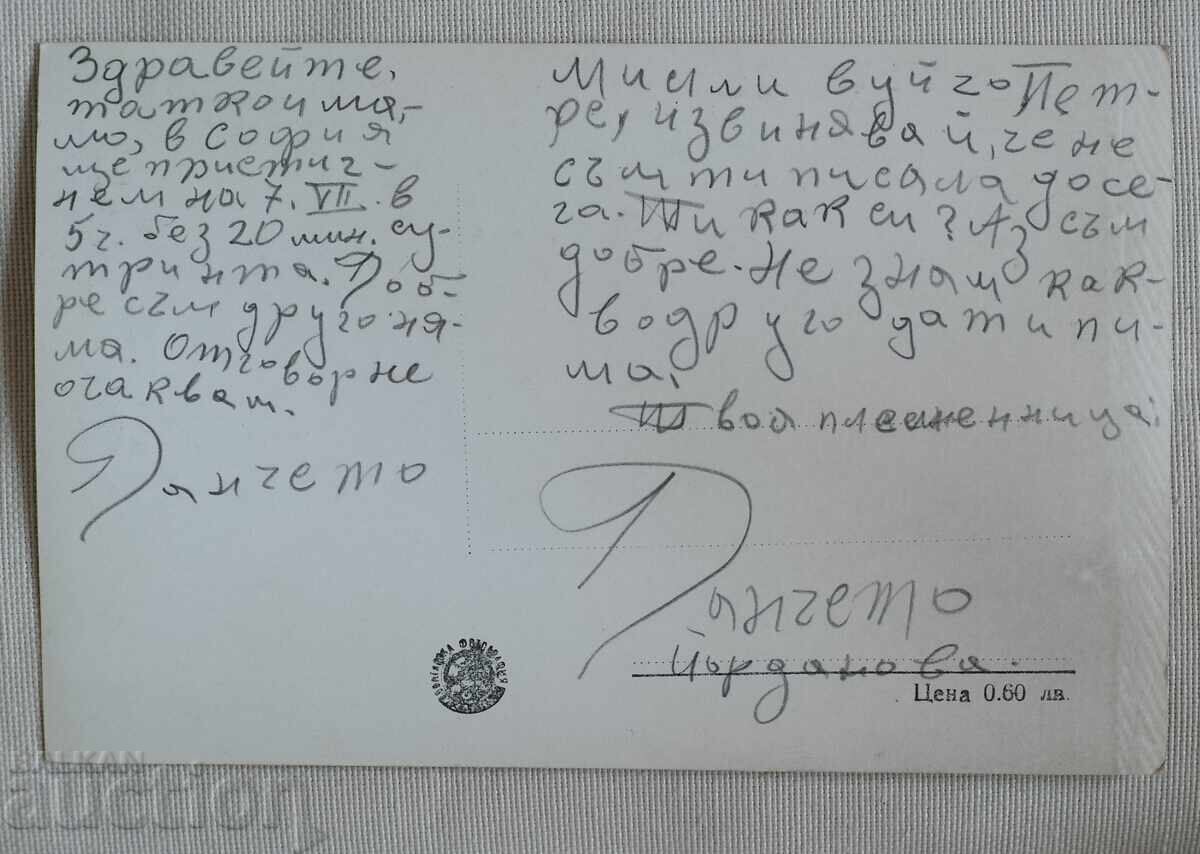 Здравейте,
татко и ма-
мо, в София
ще пристиг-
нем на 7. VII. в
5 ч. без 20 мин. су-
тринта. Доб-
ре съм друго ня-
ма. Отговор не
очаквам.
Данчето
Мили вуйчо Пет-
ре, извинявай, че не
съм ти писала досе-
га. Ти как си? Аз съм
добре. Не знам как-
во друго да ти пи-
ша.
Твоя племенница:
Данчето
Йорданова.
Цена 0.60 лв.
BALKAN
auction